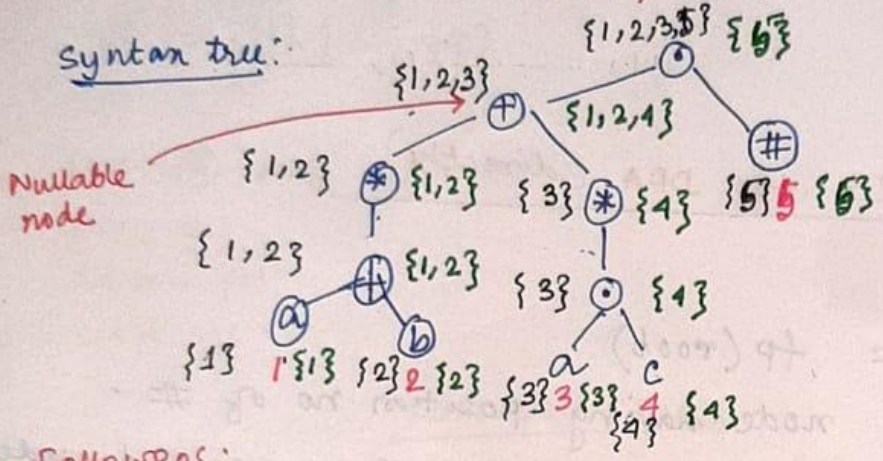 {1,2,3,5} {5}
Syntax tree:
{1,2,3} + {1,2,4}
#
{5} 5 {5}
Nullable
node
{1,2} * {1,2} {3} * {4}
{1,2} + {1,2} {3} • {4}
a b
{1} 1 {1} {2} 2 {2}
a c
{3} 3 {3} 4 {4}
{4}